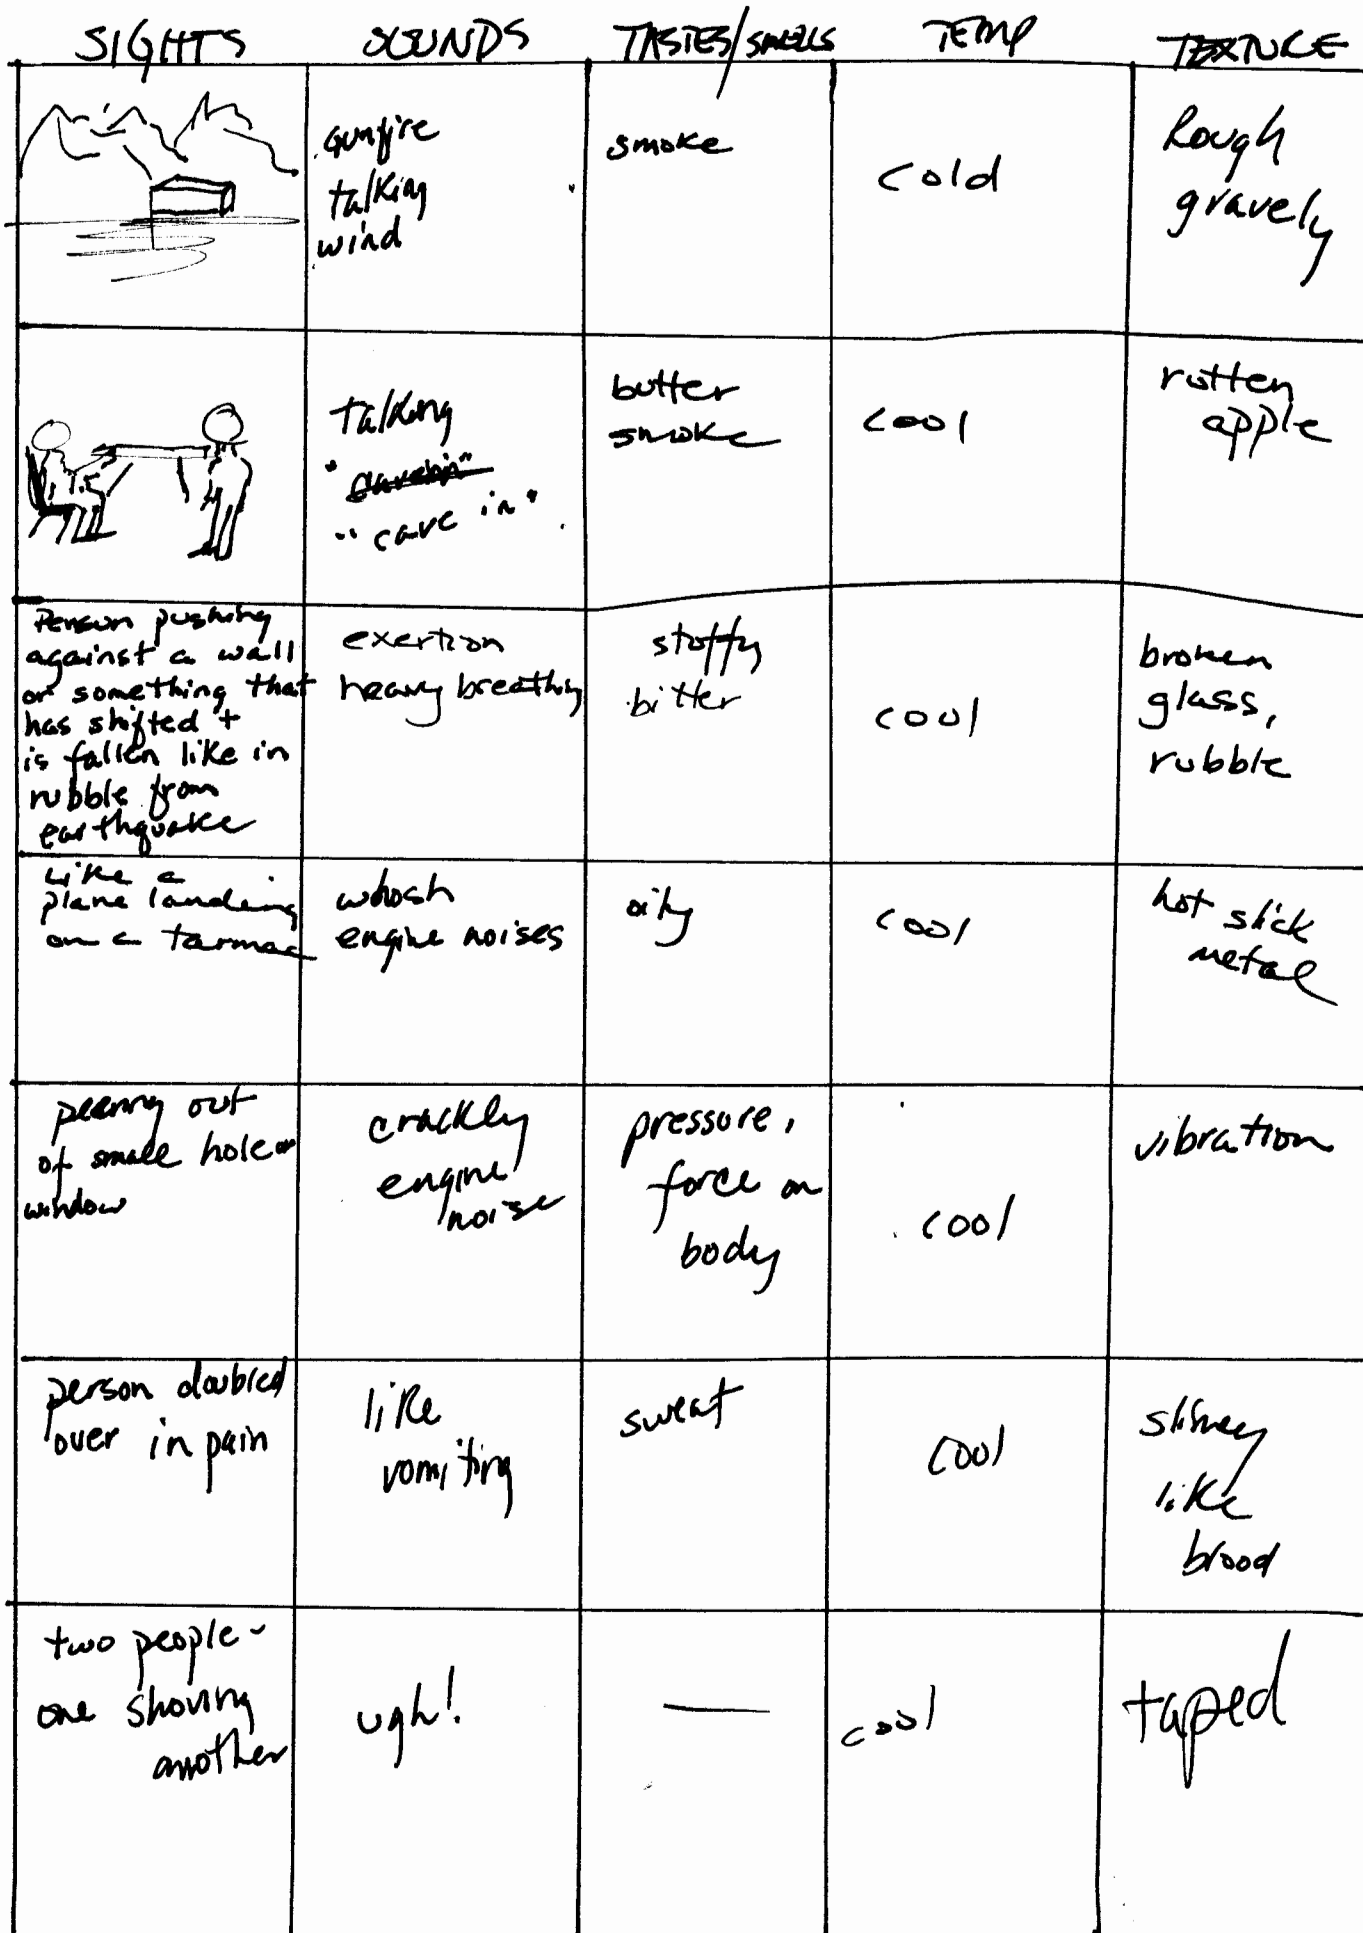 SIGHTS SOUNDS TASTES/SMELLS TEMP TEXTURE
Gunfire
talking
wind
smoke
cold
Rough
gravely
talking
"cave in"
"cave in"
butter
smoke
cool
rotten
apple
Person pushing
against a wall
or something that
has shifted +
is fallen like in
rubble from
earthquake
exertion
heavy breathing
stuffy
bitter
cool
broken
glass,
rubble
Like a
plane landing
on a tarmac
whosh
engine noises
oily
cool
hot slick
metal
peering out
of small hole or
window
crackly
engine
noise
pressure,
force on
body
cool
vibration
person doubled
over in pain
like
vomiting
sweat
cool
slimey
like
blood
two people -
one shoving
another
ugh!
—
cool
taped